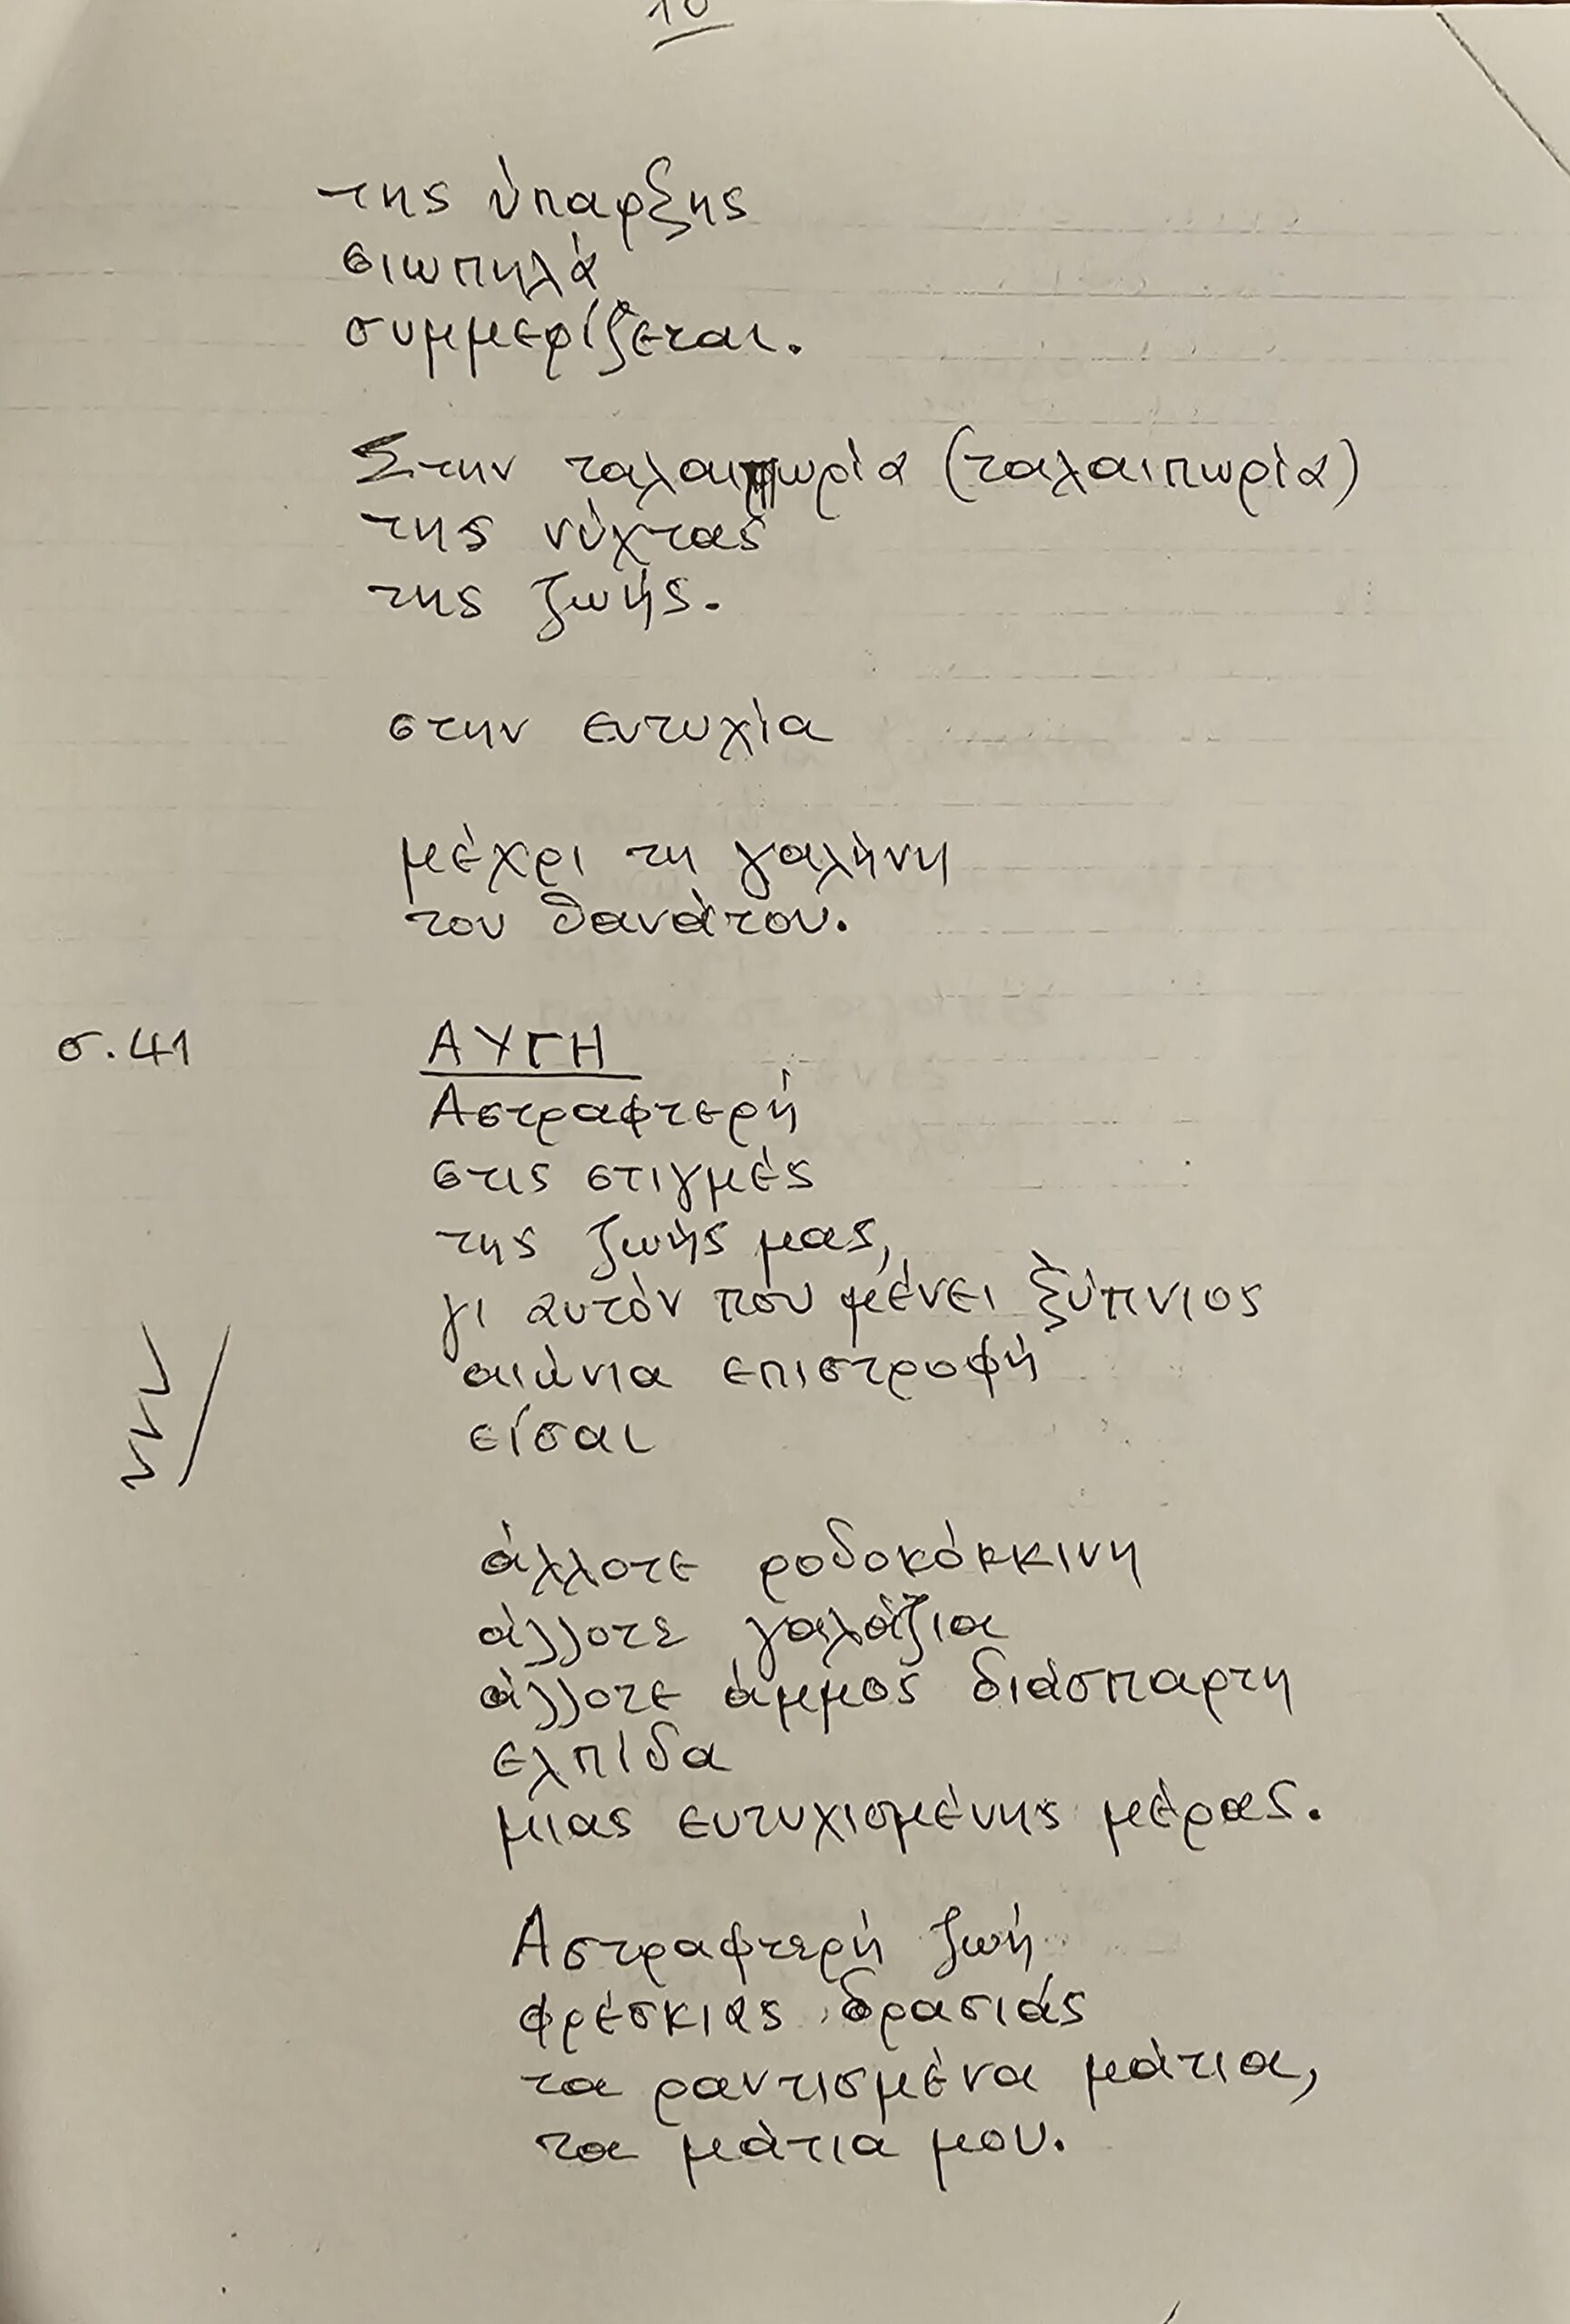 10
της ύπαρξης
σιωπηλά
συμμερίζεται.
Στην ταλαιπωρία (ταλαιπωρία)
της νύχτας
της ζωής.
στην ευτυχία
μέχρι τη γαλήνη
του θανάτου.
σ. 41 ΑΥΓΗ
Αστραφτερή
στις στιγμές
της ζωής μας,
γι αυτόν που μένει ξύπνιος
αιώνια επιστροφή
είσαι
άλλοτε ροδοκόκκινη
άλλοτε γαλάζια
άλλοτε άμμος διάσπαρτη
ελπίδα
μιας ευτυχισμένης μέρας.
Αστραφτερή ζωή
φρέσκιας δρασιάς
τα ραντισμένα μάτια,
τα μάτια μου.